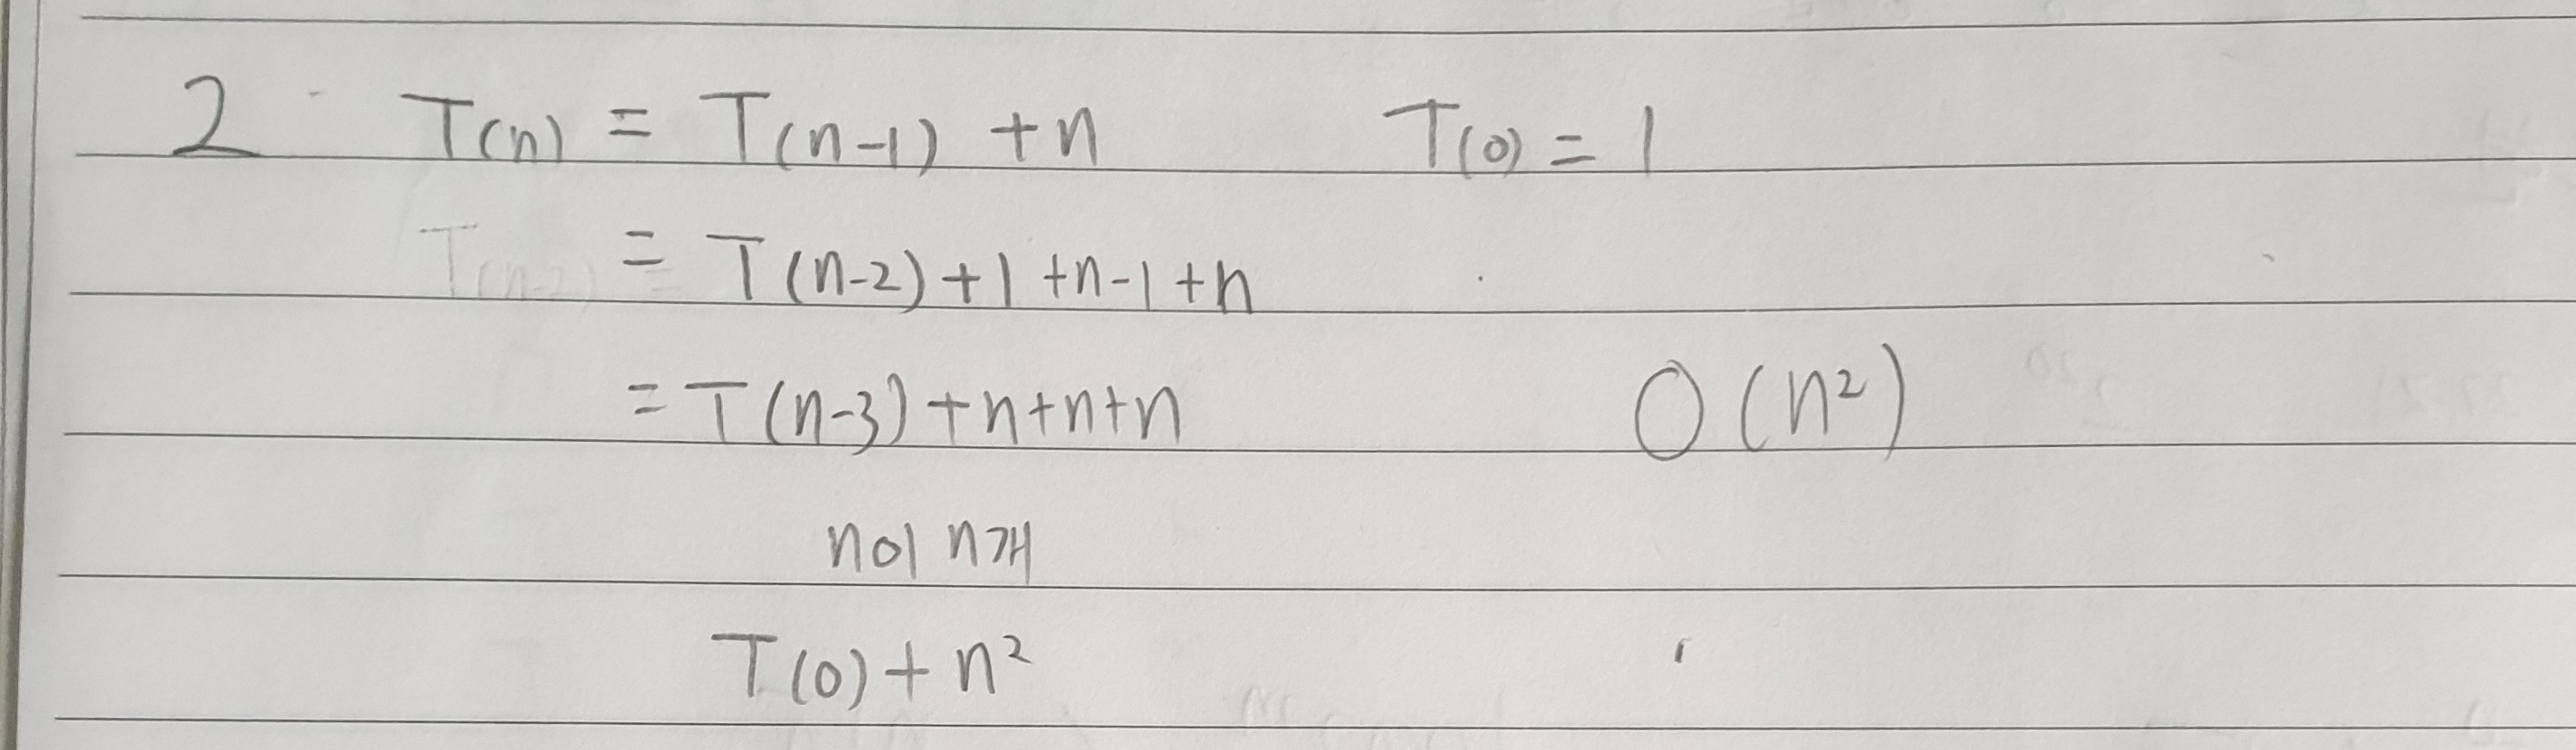 2 T(n) = T(n-1) + n T(0) = 1
= T(n-2) + 1 + n - 1 + n
= T(n-3) + n + n + n O(n²)
n이 n개
T(0) + n²